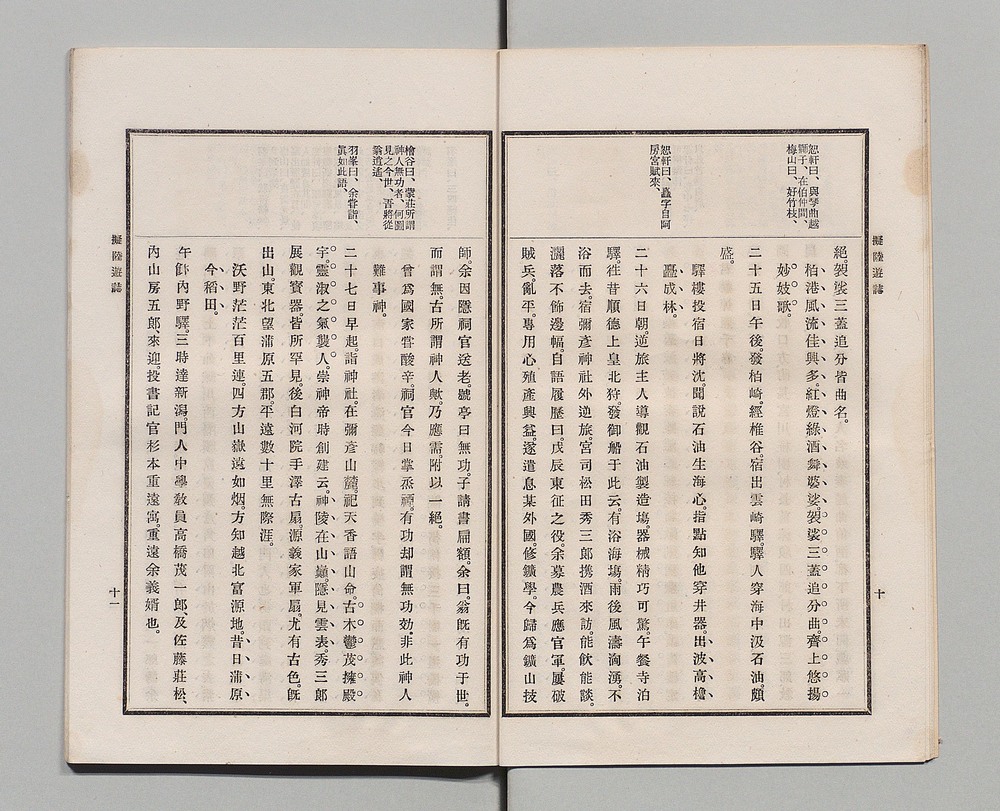 擬陸遊誌
十
恕軒曰、與琴曲越
獅子、在伯仲間、
梅山曰、好竹枝、
恕軒曰、矗字自阿
房宮賦來、
絕。袈裟三蓋追分皆曲名。
柏港風流佳興多。紅燈綠酒舞婆娑。袈裟三蓋追分曲。齊上悠揚
妙妓歌。
二十五日午後。發柏崎。經椎谷。宿出雲崎驛。驛人穿海中汲石油。頗
盛。
驛樓投宿日將沈。聞說石油生海心。指點知他穿井器。出波高檣
矗成林。
二十六日朝。逆旅主人導觀石油製造塲。器械精巧可驚。午餐寺泊
驛。徃昔順德上皇北狩。發御船于此云。有浴海塲。雨後風濤洶湧。不
浴而去。宿彌彥神社外逆旅。宮司松田秀三郎携酒來訪。能飮能談。
灑落不飾邊幅。自語履歷曰。戊辰東征之役。余募農兵應官軍。屢破
賊兵。亂平。專用心殖產興益。遂遣息某外國。修鑛學。今歸爲鑛山技
檜谷曰、蒙莊所謂
神人無功者、何圖
見之今世、吾將從
翁逍遙、
羽峯曰、余嘗詣、
眞如此語、
師。余因隱祠官送老。號亭曰無功。子請書扁額。余曰。翁旣有功于世。
而謂無。古所謂神人歟。乃應需。附以一絕。
曾爲國家嘗酸辛。祠官今日掌烝禋。有功却謂無功効。非此神人
難事神。
二十七日早起。詣神社。在彌彥山麓。祀天香語山命。古木鬱茂擁殿
宇。靈淑之氣襲人。崇神帝時創建云。神陵在山巓。隱見雲表。秀三郎
展觀寶器。皆所罕見。後白河院手澤古扇。源義家軍扇。尤有古色。旣
出山東北望蒲原五郡。平遠數十里無際涯。
沃野茫茫百里連。四方山嶽遠如烟。方知越北富源地。昔日蒲原
今稻田。
午飰內野驛。三時達新潟。門人中學敎員高橋茂一郎、及佐藤莊松、
內山房五郎、來迎。投書記官杉本重遠寓。重遠余義婿也。
擬陸遊誌
十一